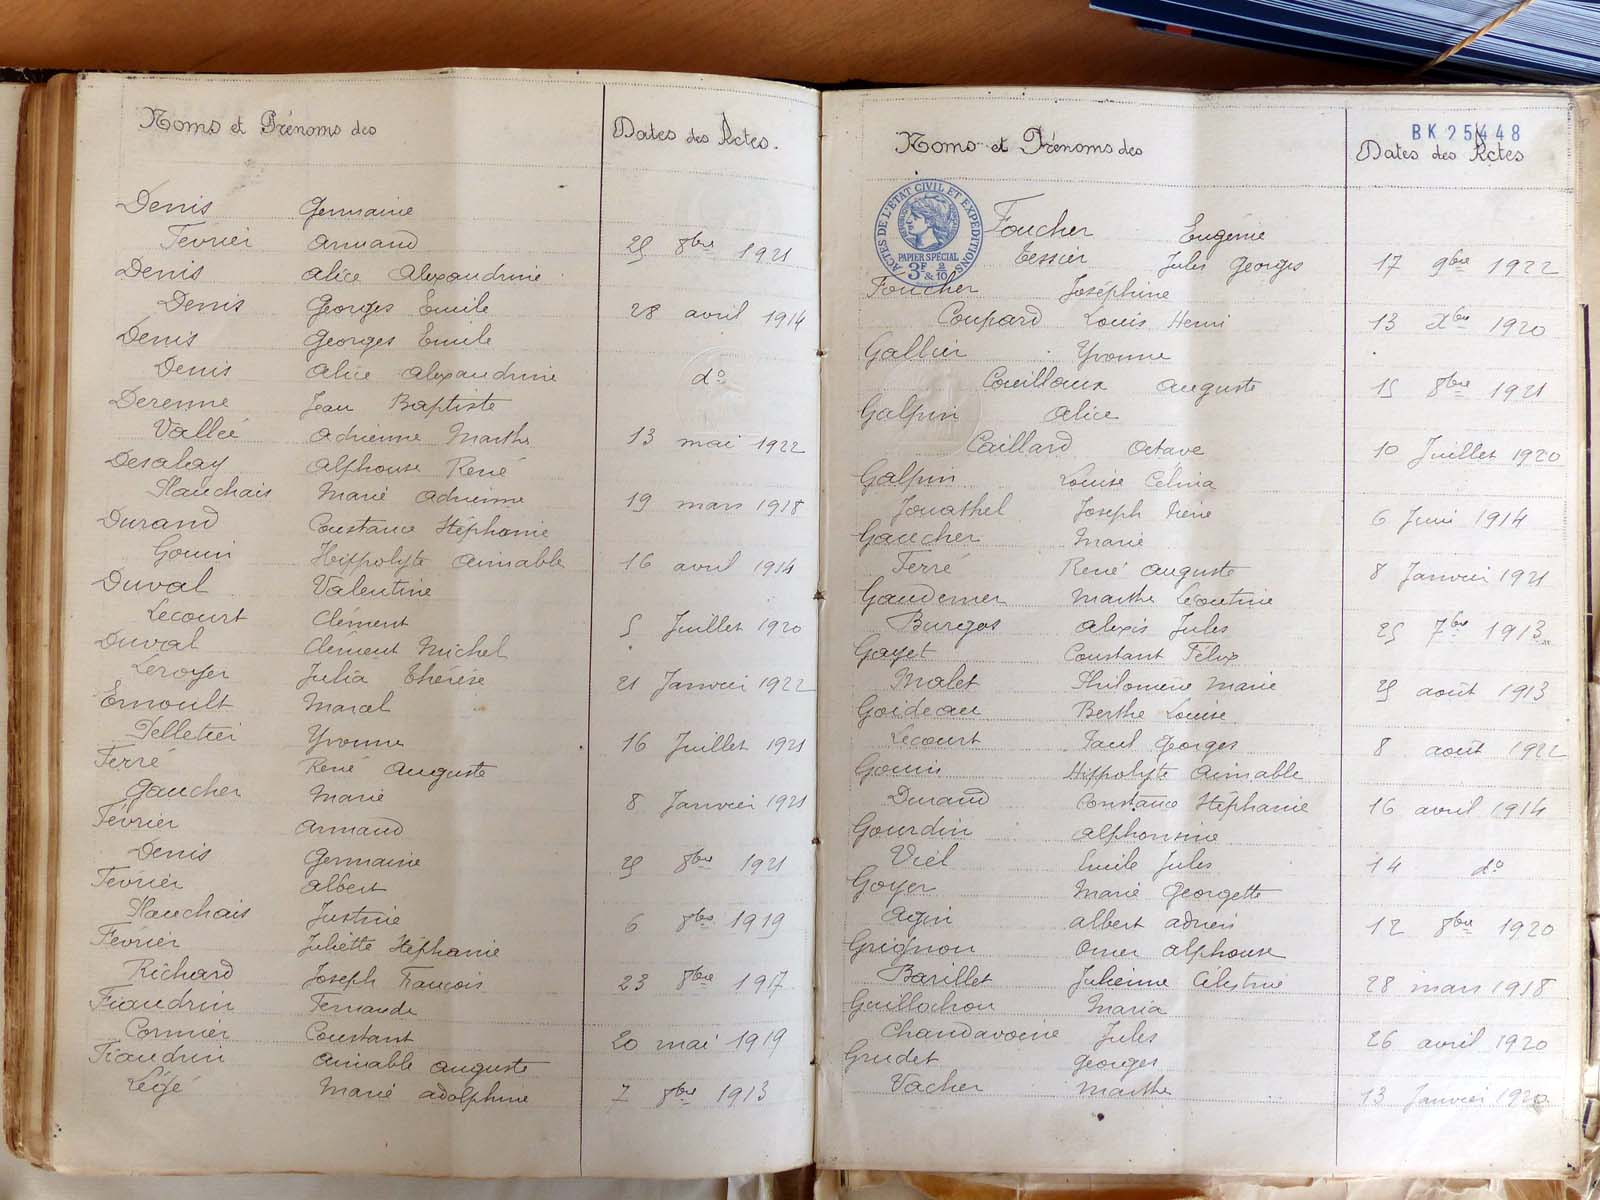 Noms et Prénoms des
Dates des Actes.
Denis Germaine
Février Armand 25 8bre 1921
Denis Alice Alexandrine
Denis Georges Emile 28 avril 1914
Denis Georges Emile
Denis Alice Alexandrine do
Derenne Jean Baptiste
Vallée Adrienne Marthe 13 mai 1922
Desalay Alphonse René
Plauchais Marie Adrienne 19 mars 1918
Durand Constance Stéphanie
Gouin Hippolyte Aimable 16 avril 1914
Duval Valentine
Lecourt Clément 5 Juillet 1920
Duval Clément Michel
Leroyer Julia Thérèse 21 Janvier 1922
Ernoult Marcel
Pelletier Yvonne 16 Juillet 1921
Ferré René Auguste
Gaucher Marie 8 Janvier 1921
Février Armand
Denis Germaine 25 8bre 1921
Février Albert
Plauchais Justine 6 8bre 1919
Février Juliette Stéphanie
Richard Joseph François 23 8bre 1917
Fiaudrin Fernande
Cormier Constant 20 mai 1919
Fiaudrin Aimable Auguste
Légé Marie Adolphine 7 8bre 1913
BK 25448
Noms et Prénoms des
Dates des Actes
ACTES DE L'ETAT CIVIL ET EXPEDITIONS
PAPIER SPÉCIAL
3F & 2/10
Foucher Eugénie
Tessier Jules Georges 17 9bre 1922
Foucher Joséphine
Coupard Louis Henri 13 Xbre 1920
Gallier Yvonne
Couilloux Auguste 15 8bre 1921
Galpin Alice
Caillard Octave 10 Juillet 1920
Galpin Louise Célina
Jouathel Joseph 6 Juin 1914
Gaucher Marie
Ferré René Auguste 8 Janvier 1921
Gaudemer Marthe Léontine
Burgos Alexis Jules 25 7bre 1913
Gayet Constant Félix
Malet Philomène Marie 25 août 1913
Goideau Berthe Louise
Lecourt Paul Georges 8 août 1922
Gouin Hippolyte Aimable
Durand Constance Stéphanie 16 avril 1914
Gourdin Alphonsine
Viel Emile Jules 14 do
Goyer Marie Georgette
Agin Albert Adrien 12 8bre 1920
Grignon Omer Alphonse
Barillet Julienne Célestine 28 mars 1918
Guillochon Maria
Chandavoine Jules 26 avril 1920
Grudet Georges
Vacher Marthe 13 Janvier 1920